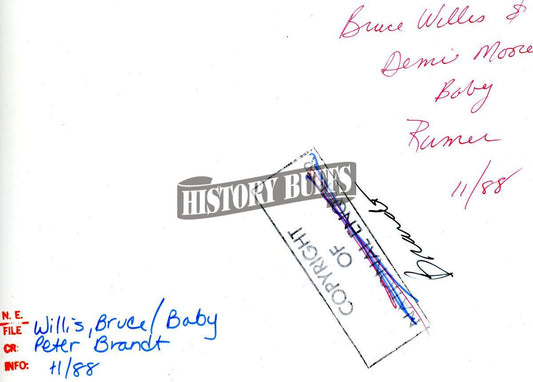 Bruce Willis &
Demi Moore
Baby
Rumer
11/88
HISTORY BUFFS
COPYRIGHT
OF
NAL ENQ
Brandt
N. E.
FILE Willis, Bruce/Baby
CR: Peter Brandt
INFO: 11/88